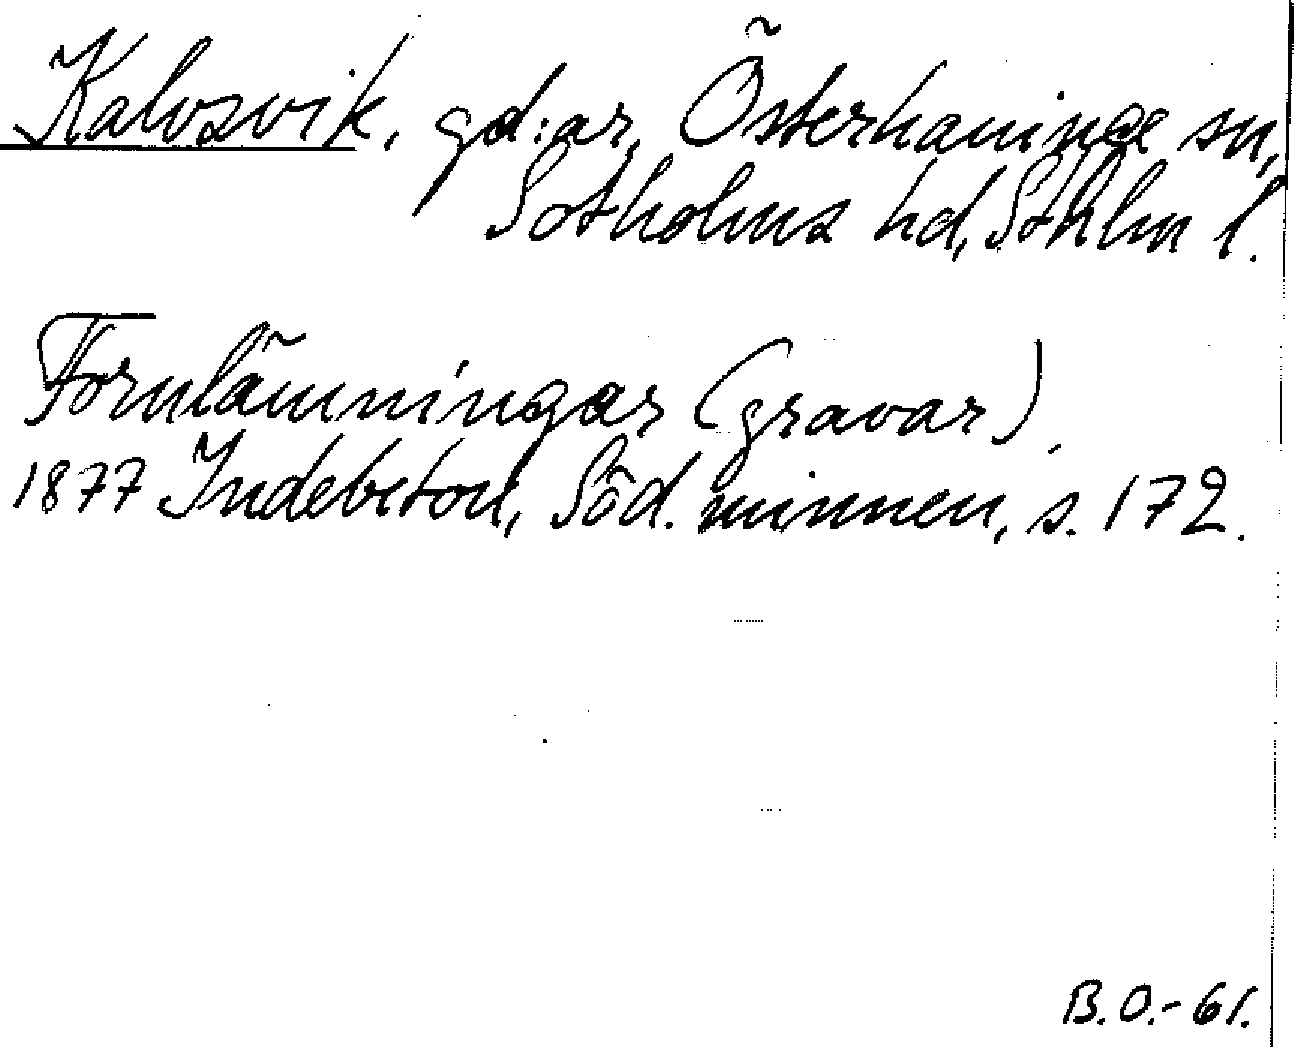 Kalvsvik, gd:ar, Österhaninge sn,
Sotholms hd, Sthlm l.
Fornlämningar (gravar),
1877 Indebetou, Söd. minnen, s. 172.
B.O.-61.